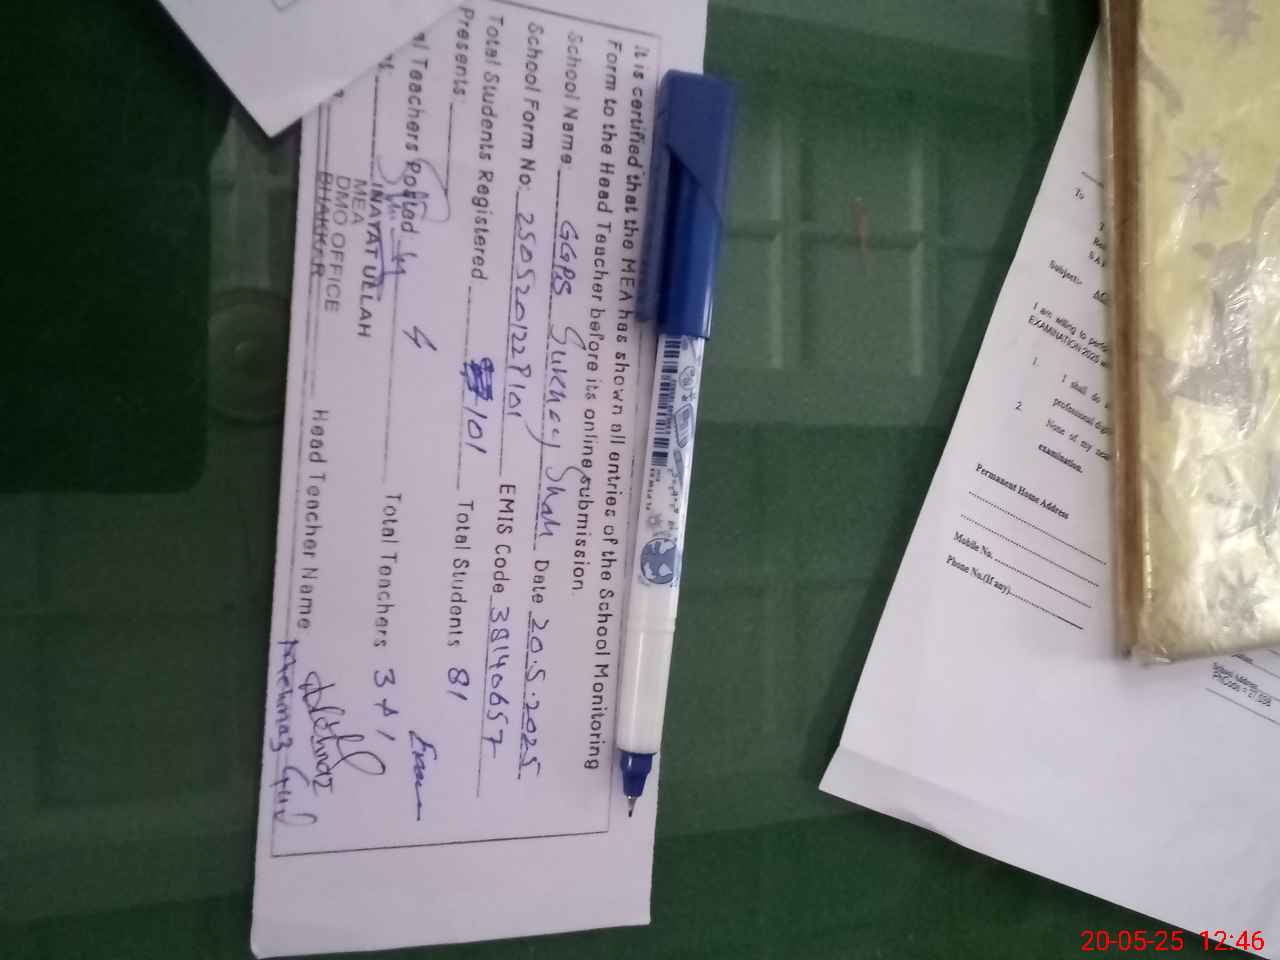 It is certified that the MEA has shown all entries of the School Monitoring
Form to the Head Teacher before its online submission.
School Name: GGPS Sukhay Shah Date 20.5.2025
School Form No: 250520122 101 EMIS Code 38140657
Total Students Registered 101 Total Students 81
Presents:
al Teachers Posted 4 Total Teachers 3+1
INAYAT ULLAH
MEA
DMO OFFICE
BHAKKER
Head Teacher Name Mehnaz Gul
To
Subject:-
I am willing to
EXAMINATION 2025
1. I shall do
professional
2. None of my near
examination.
Permanent Home Address
Mobile No.
Phone No.(If any)
20-05-25 12:46